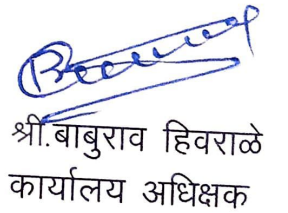 श्री.बाबुराव हिवराळे
कार्यालय अधिक्षक